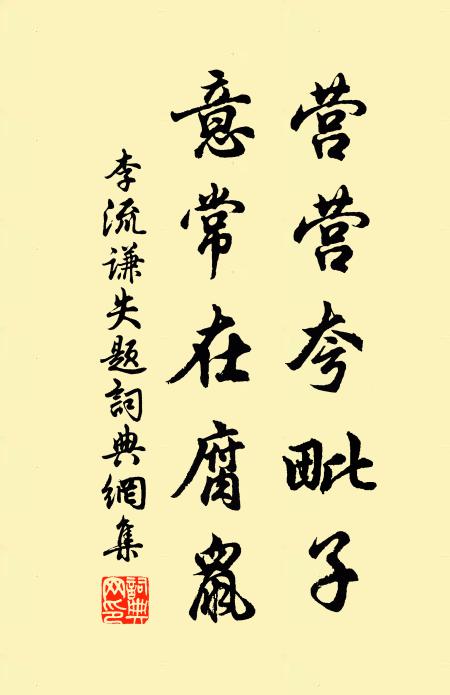 营营夸毗子
意常在腐鼠
李流谦失题詞典網集
詞典网印